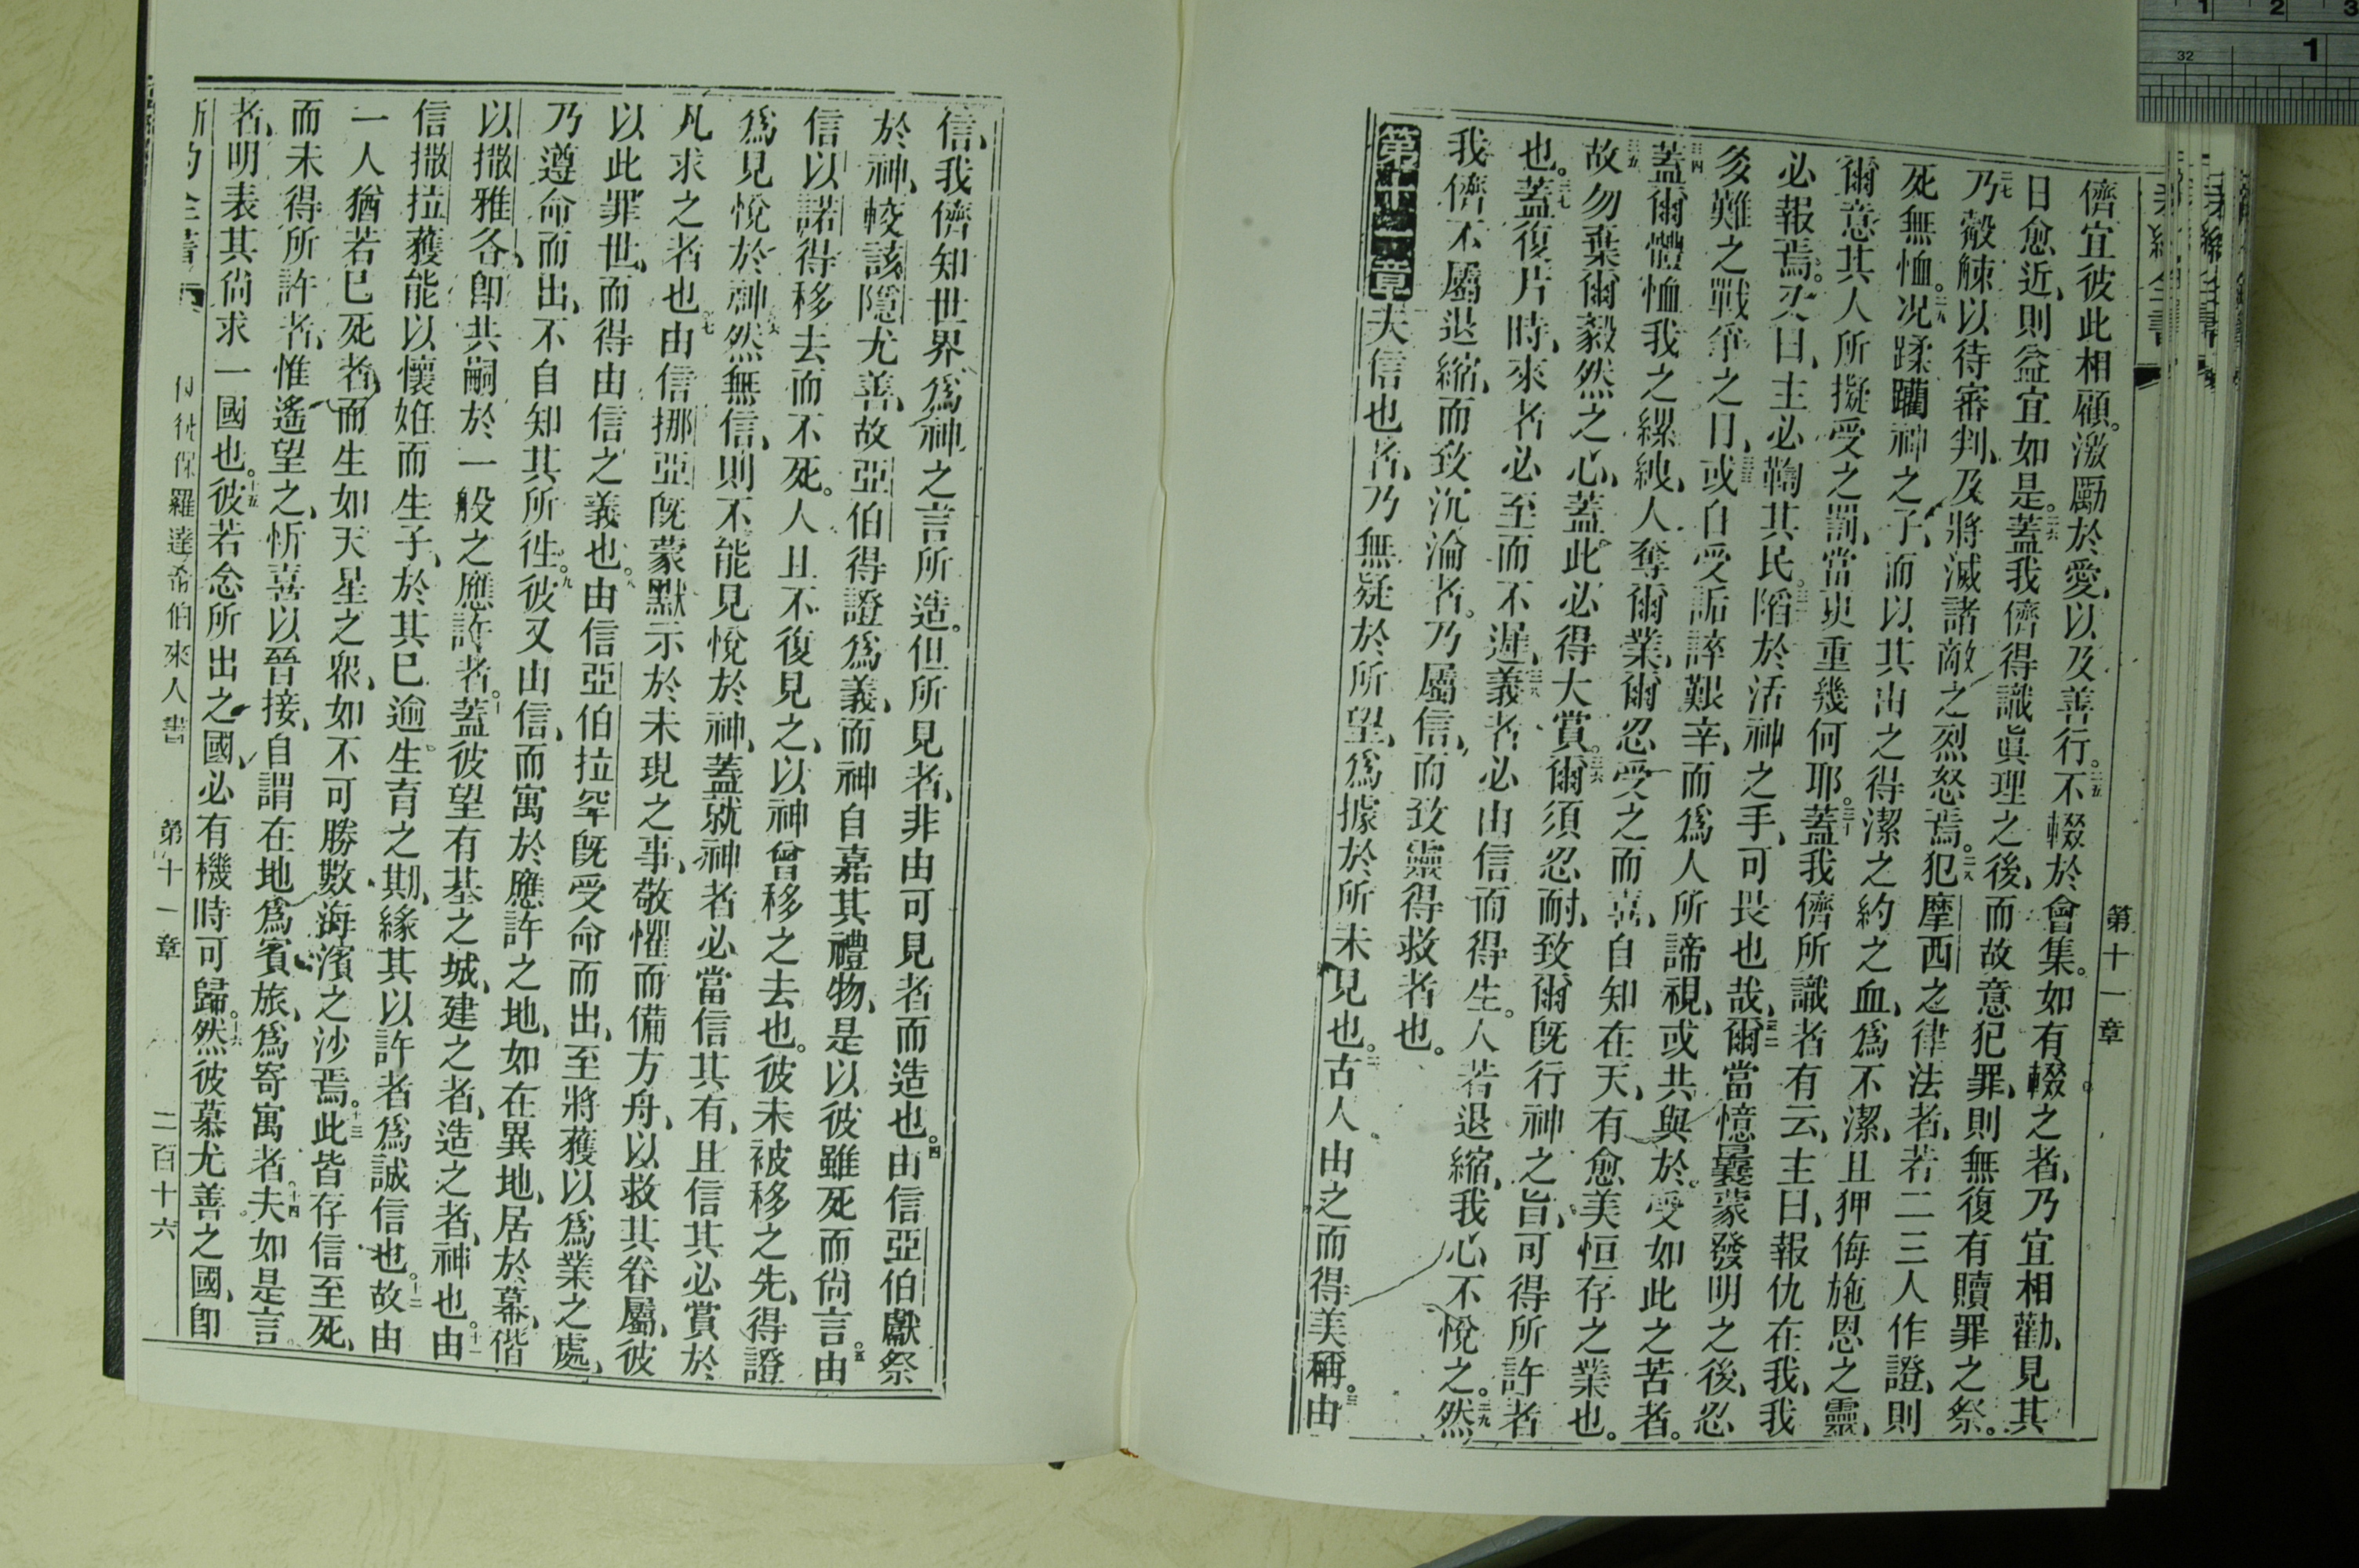 第十一章
儕宜彼此相顧。激勵於愛、以及善行。二五不輟於會集。如有輟之者、乃宜相勸、見其
日愈近、則益宜如是。二六蓋我儕得識眞理之後、而故意犯罪、則無復有贖罪之祭。
二七乃觳觫以待審判、及將滅諸敵之烈怒焉。二八犯摩西之律法者、若二三人作證、則
死無恤。二九况蹂躪神之子、而以其由之得潔之約之血、爲不潔、且狎侮施恩之靈、
爾意其人所擬受之罰、當更重幾何耶。三十蓋我儕所識者有云、主曰、報仇在我、我
必報焉。又曰、主必鞫其民。三一陷於活神之手、可畏也哉、三二爾當憶曩蒙發明之後、忍
多難之戰爭之日、三三或自受詬誶艱辛、而爲人所諦視、或共與於受如此之苦者。
三四蓋爾體恤我之縲絏、人奪爾業、爾忍受之而喜、自知在天、有愈美恒存之業也。
三五故勿棄爾毅然之心、蓋此必得大賞。三六爾須忍耐、致爾旣行神之旨、可得所許者
也。三七蓋復片時、來者必至而不遲、三八義者必由信而得生。人若退縮、我心不悅之。三九然
我儕不屬退縮、而致沉淪者。乃屬信、而致靈得救者也。
第十一章夫信也者、乃無疑於所望、爲據於所未見也。二古人由之而得美稱。三由
信、我儕知世界爲神之言所造。但所見者、非由可見者而造也。四由信亞伯獻祭
於神、較該隱尤善、故亞伯得證爲義、而神自嘉其禮物、是以彼雖死而尙言。五由
信以諾得移去而不死。人且不復見之、以神曾移之去也。彼未被移之先、得證
爲見悅於神、六然無信、則不能見悅於神、蓋就神者必當信其有、且信其必賞於
凡求之者也。七由信挪亞旣蒙默示於未現之事、敬懼而備方舟、以救其眷屬、彼
以此罪世、而得由信之義也。八由信亞伯拉罕旣受命而出、至將獲以爲業之處、
乃遵命而出、不自知其所徃。九彼又由信、而寓於應許之地、如在異地、居於幕、偕
以撒雅各、卽共嗣於一般之應許者。十蓋彼望有基之城、建之者、造之者、神也。十一由
信撒拉獲能以懷姙而生子、於其已逾生育之期、緣其以許者爲誠信也。十二故由
一人猶若已死者、而生如天星之衆、如不可勝數海濱之沙焉。十三此皆存信至死、
而未得所許者、惟遙望之、忻喜以晉接、自謂在地爲賓旅、爲寄寓者。十四夫如是言
者、明表其尙求一國也。十五彼若念所出之國、必有機時可歸。十六然彼慕尤善之國、卽
使徒保羅達希伯來人書　第十一章　二百十六